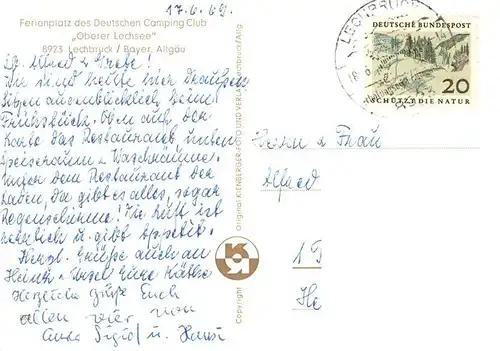 17.6.69.
Ferienplatz des Deutschen Camping Club
"Oberer Lechsee"
8923 Lechbruck / Bayer. Allgäu
Lb. Alfred u. Grete!
Wir sind heute hier draußen
sitzen ausnahmslich beim
Frühstück. Oben auf der
Karte das Restaurant, unten
Speiseraum u. Waschräume.
Unter dem Restaurant der
Laden, da gibt es alles, sogar
Regenschirme! Die Luft ist
herrlich u. gibt Appetit.
Herzl. Grüße auch an
Heinz u. Ursel Eure Käthe
Herzliche Grüße Euch
allen vier von
Eurer Sigrid u. Hansi
LECHBRUCK
DEUTSCHE BUNDESPOST
20
SCHÜTZT DIE NATUR
Herrn u Frau
Alfred
1
He
Copyright
Original KIENBERGER FOTO UND VERLAG Lechbruck/Allg